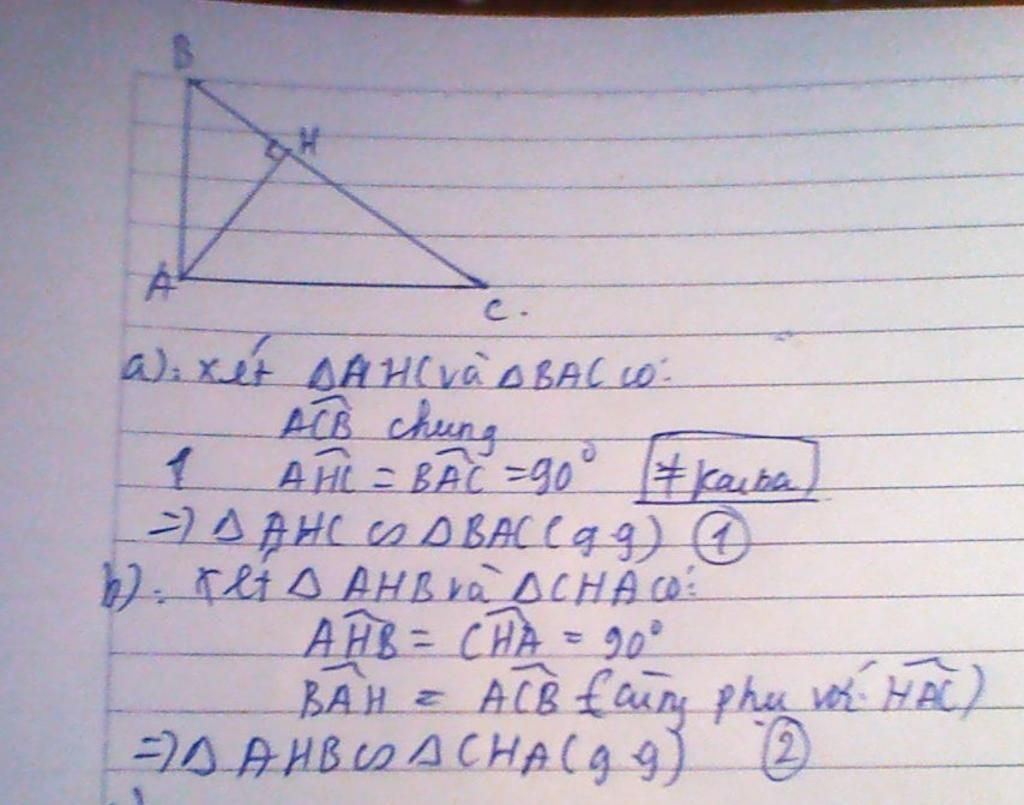 B
H
A
C.
a). xét ΔAHC và ΔBAC có:
ACB chung
1 AHC = BAC = 90° ≠ kaina
=) Δ AHC ∽ ΔBAC (g g) 1
b). xét Δ AHB và ΔCHA có:
AHB = CHA = 90°
BAH = ACB (cùng phụ với HAC)
=) Δ AHB ∽ ΔCHA (g g) 2